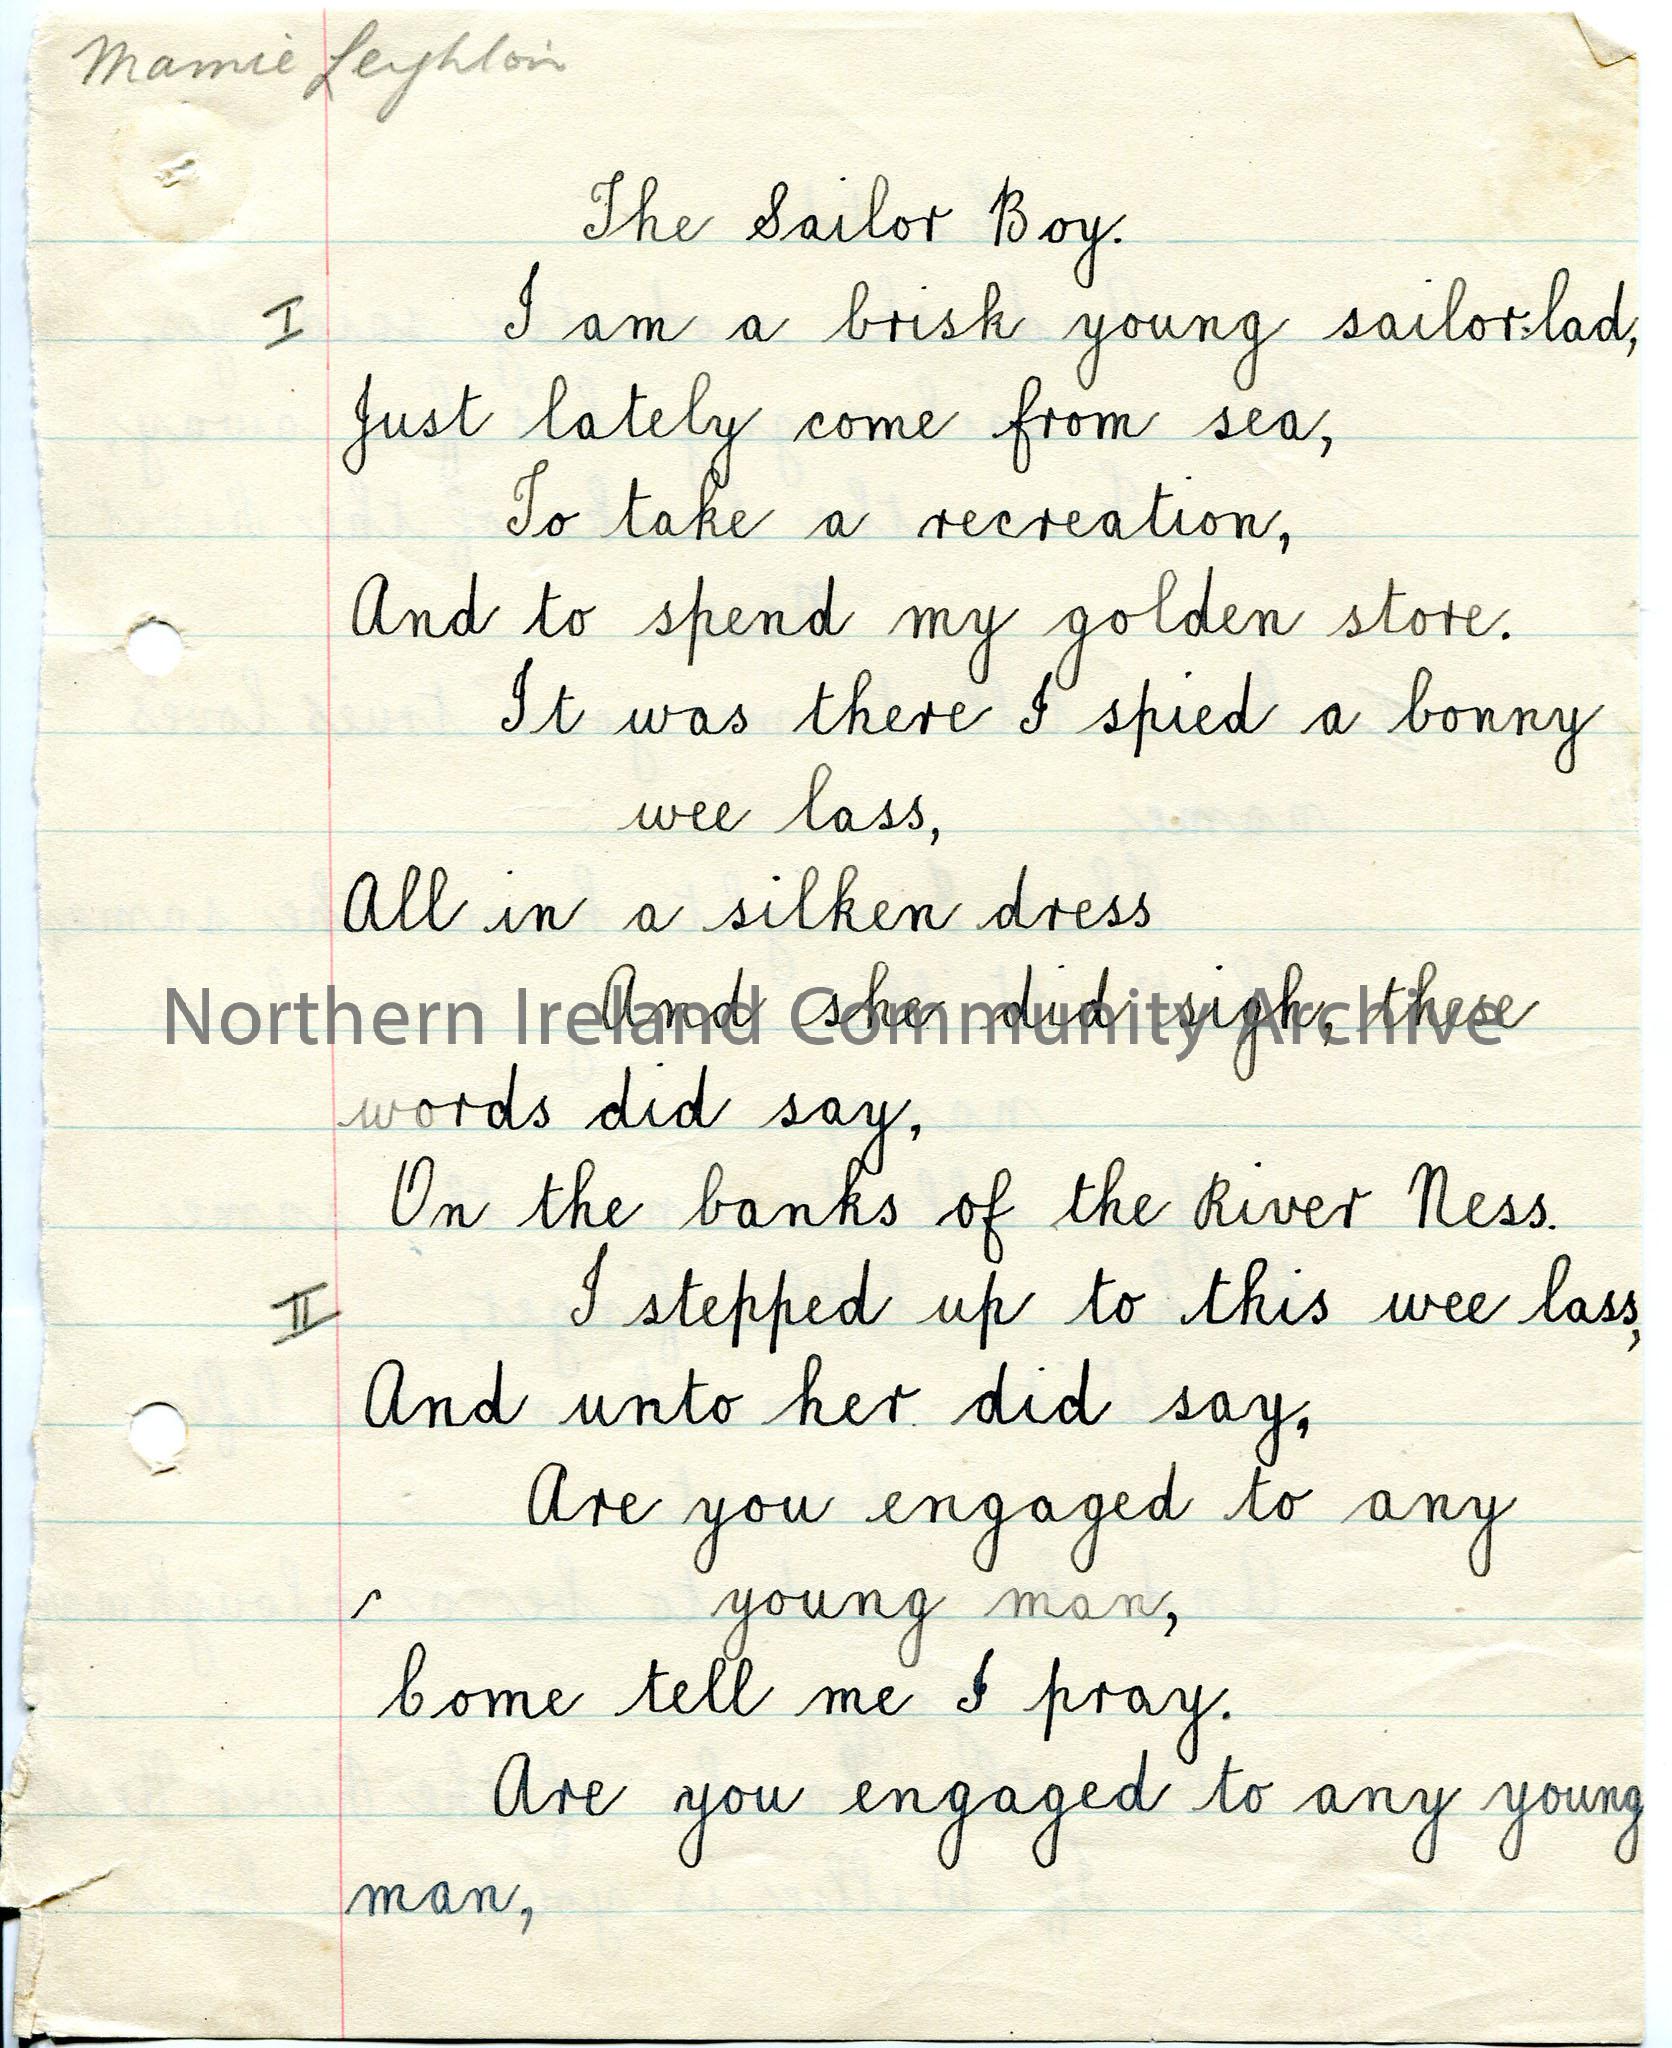 Mamie Leighton
The Sailor Boy.
I I am a brisk young sailor-lad,
Just lately come from sea,
To take a recreation,
And to spend my golden store.
It was there I spied a bonny
wee lass,
All in a silken dress
And she did sigh, these
Northern Ireland Community Archive
words did say,
On the banks of the River Ness.
II I stepped up to this wee lass,
And unto her did say,
Are you engaged to any
young man,
Come tell me I pray.
Are you engaged to any young
man,